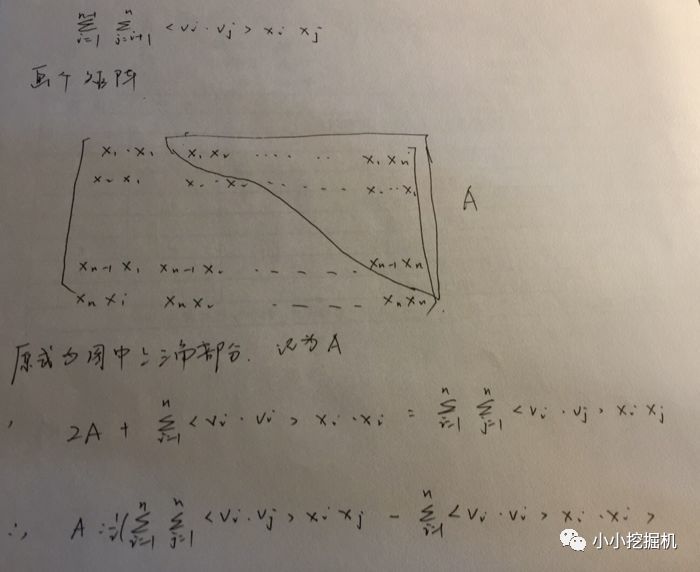 ∑_{i=1}^{n-1} ∑_{j=i+1}^{n} <vi · vj> xi xj
画个矩阵
x1·x1 x1x2 ···· ·· x1xn
x2x1 x2·x2 - - - - x··x
A
xn-1x1 xn-1x2 - - - - xn-1xn
xnxi xnx2 - - - - xnxn
原式为图中上三角部分. 记为A
, 2A + ∑_{i=1}^{n} <vi · vi> xi·xi = ∑_{i=1}^{n} ∑_{j=1}^{n} <vi · vj> xi xj
∴, A = ½(∑_{i=1}^{n} ∑_{j=1}^{n} <vi · vj> xi xj - ∑_{i=1}^{n} <vi · vi> xi·xi>
小小挖掘机